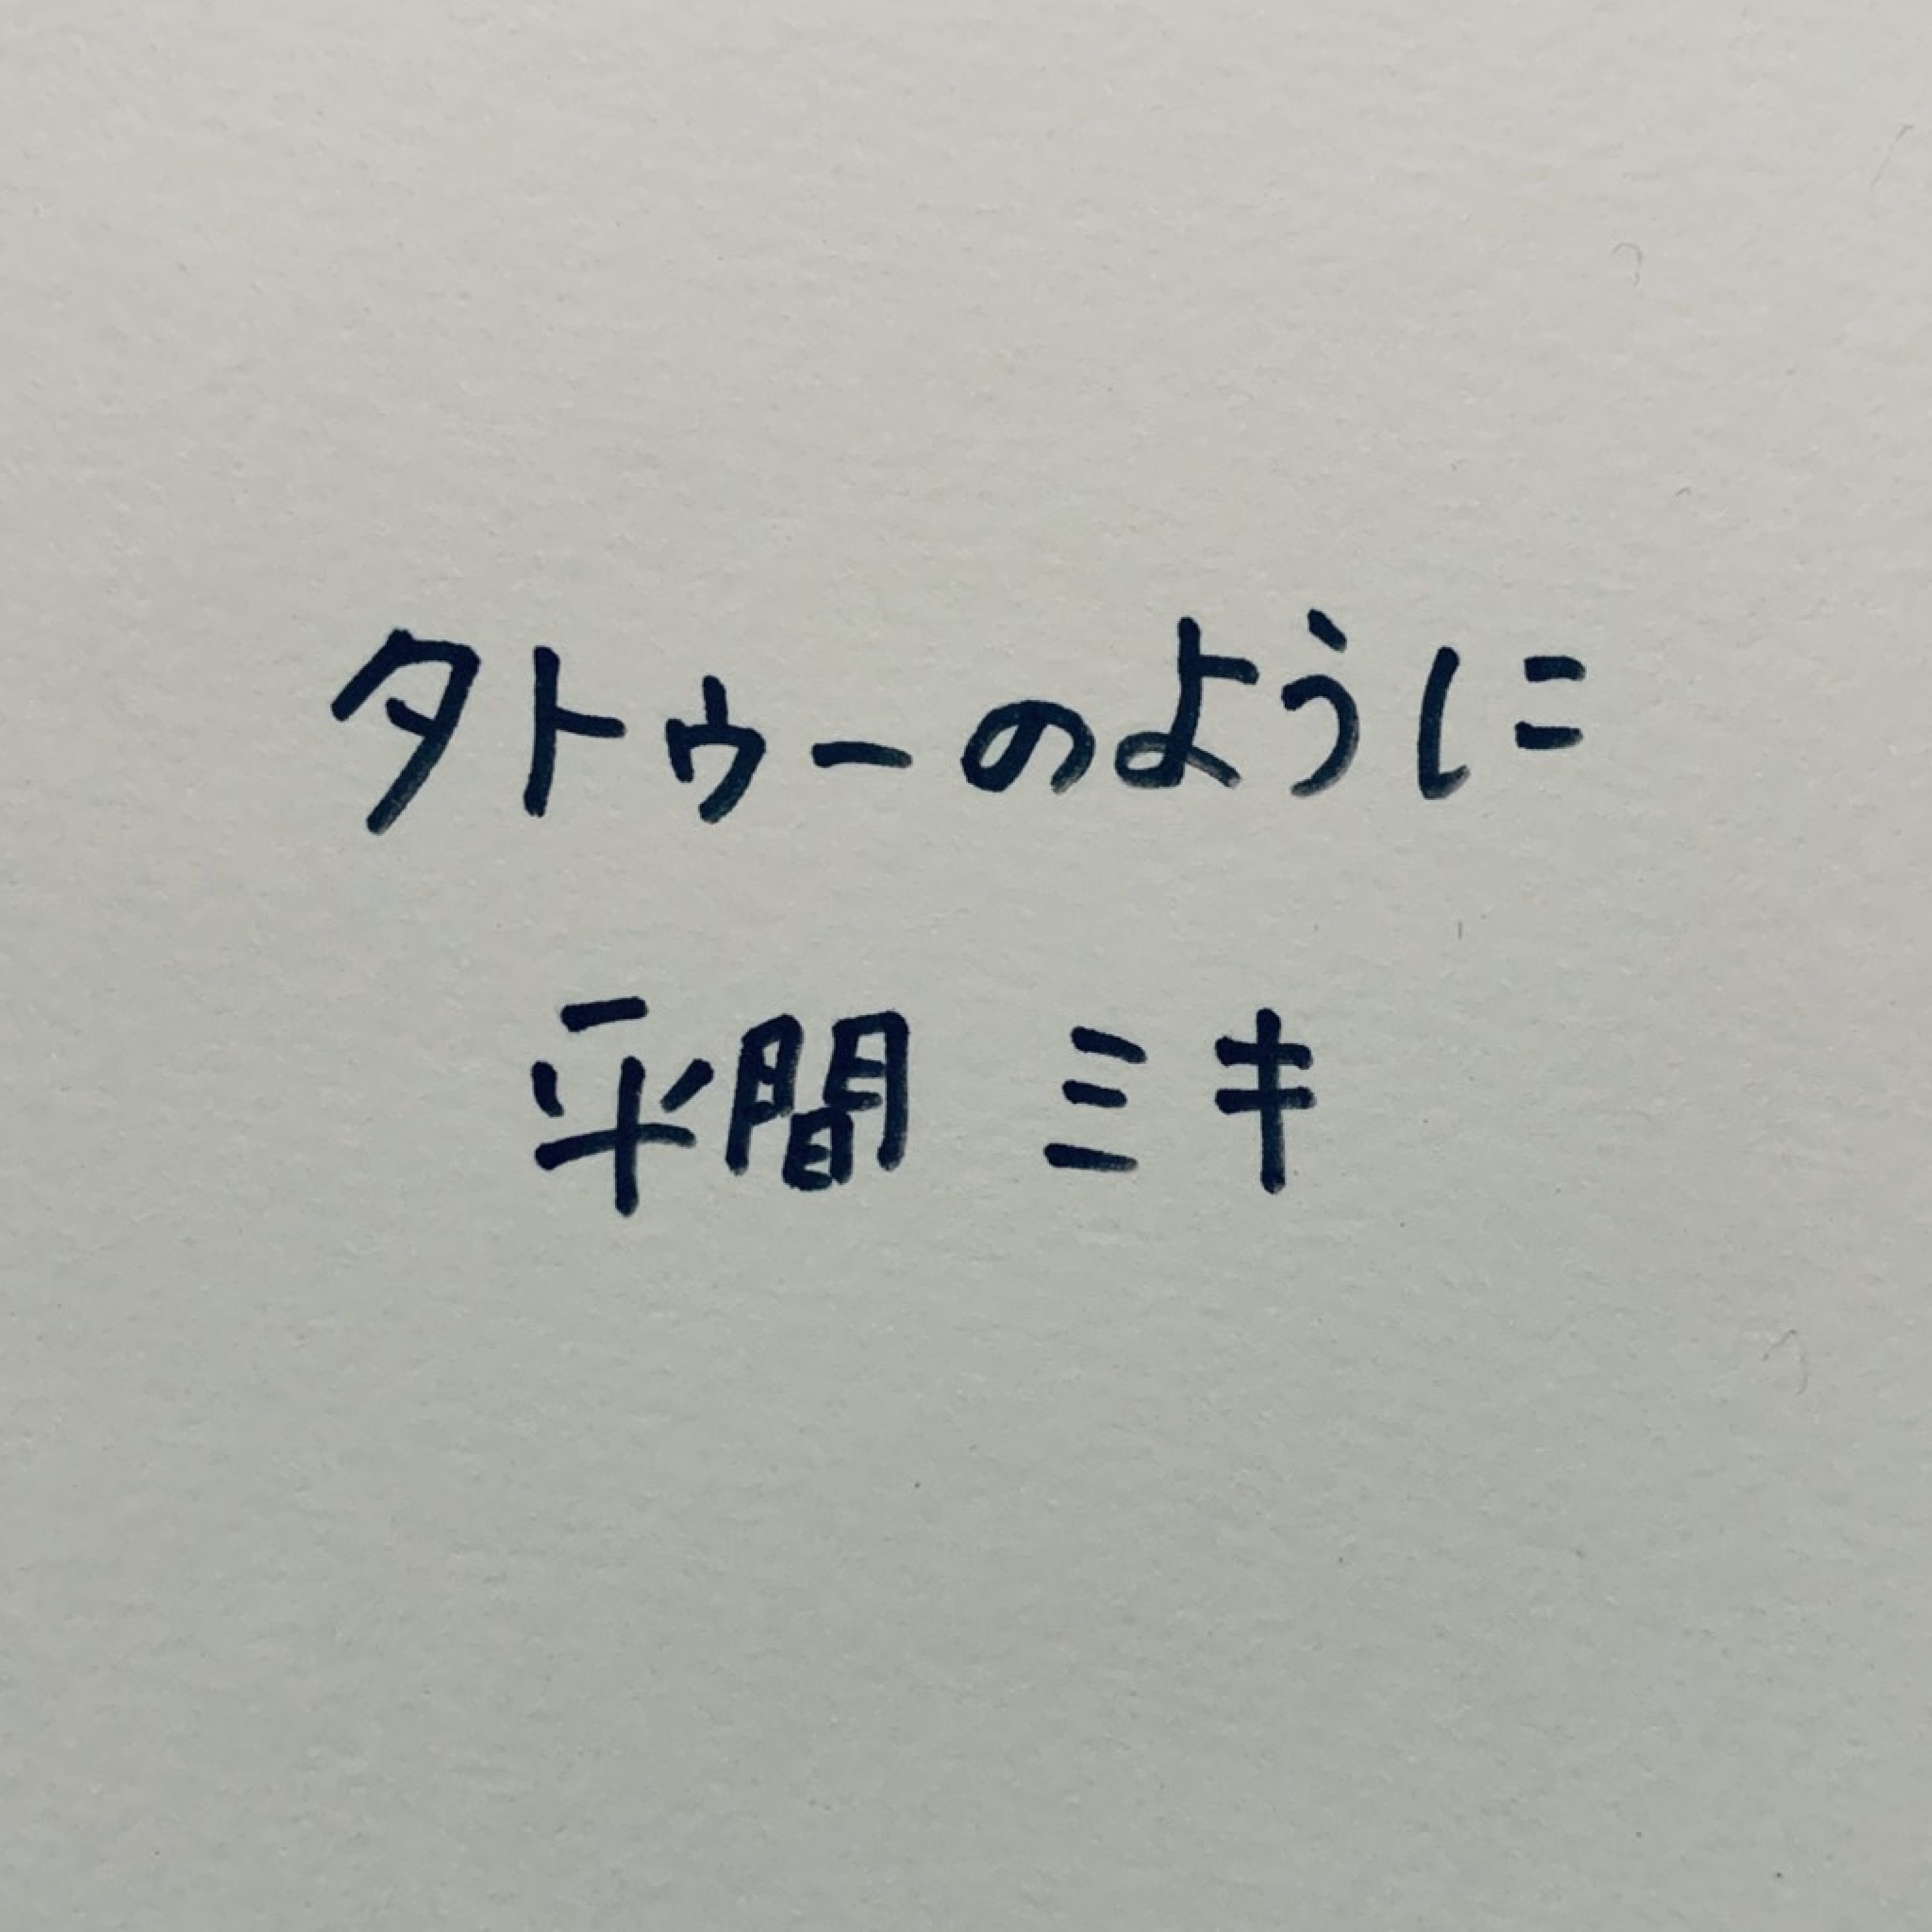 タトゥーのように
平間 ミキ